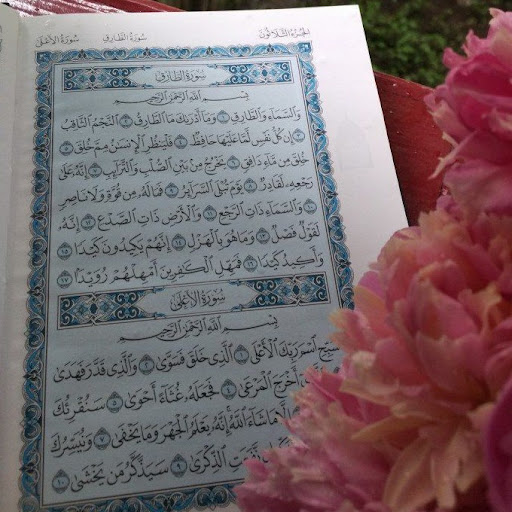 الجزء الثلاثون سورة الطارق سورة الأعلى
سورة الطارق
بسم الله الرحمن الرحيم
والسماء والطارق ١ وما أدراك ما الطارق ٢ النجم الثاقب
٣ إن كل نفس لما عليها حافظ ٤ فلينظر الإنسن مم خلق ٥
خلق من ماء دافق ٦ يخرج من بين الصلب والترائب ٧ إنه على
رجعه لقادر ٨ يوم تبلى السرائر ٩ فما له من قوة ولا ناصر ١٠
والسماء ذات الرجع ١١ والأرض ذات الصدع ١٢ إنه
لقول فصل ١٣ وما هو بالهزل ١٤ إنهم يكيدون كيدا ١٥
وأكيد كيدا ١٦ فمهل الكفرين أمهلهم رويدا ١٧
سورة الأعلى
بسم الله الرحمن الرحيم
سبح اسم ربك الأعلى ١ الذي خلق فسوى ٢ والذي قدر فهدى
أخرج المرعى ٤ فجعله غثاء أحوى ٥ سنقرئك
ما شاء الله إنه يعلم الجهر وما يخفى ٧ ونيسرك
نفعت الذكرى ٩ سيذكر من يخشى ١٠